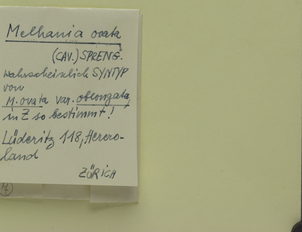 Melhania ovata
(CAV.) SPRENG.
wahrscheinlich SYNTYP
von
M. ovata var. oblongata
in Z so bestimmt!
Lüderitz 118, Herero-
land
ZÜRICH